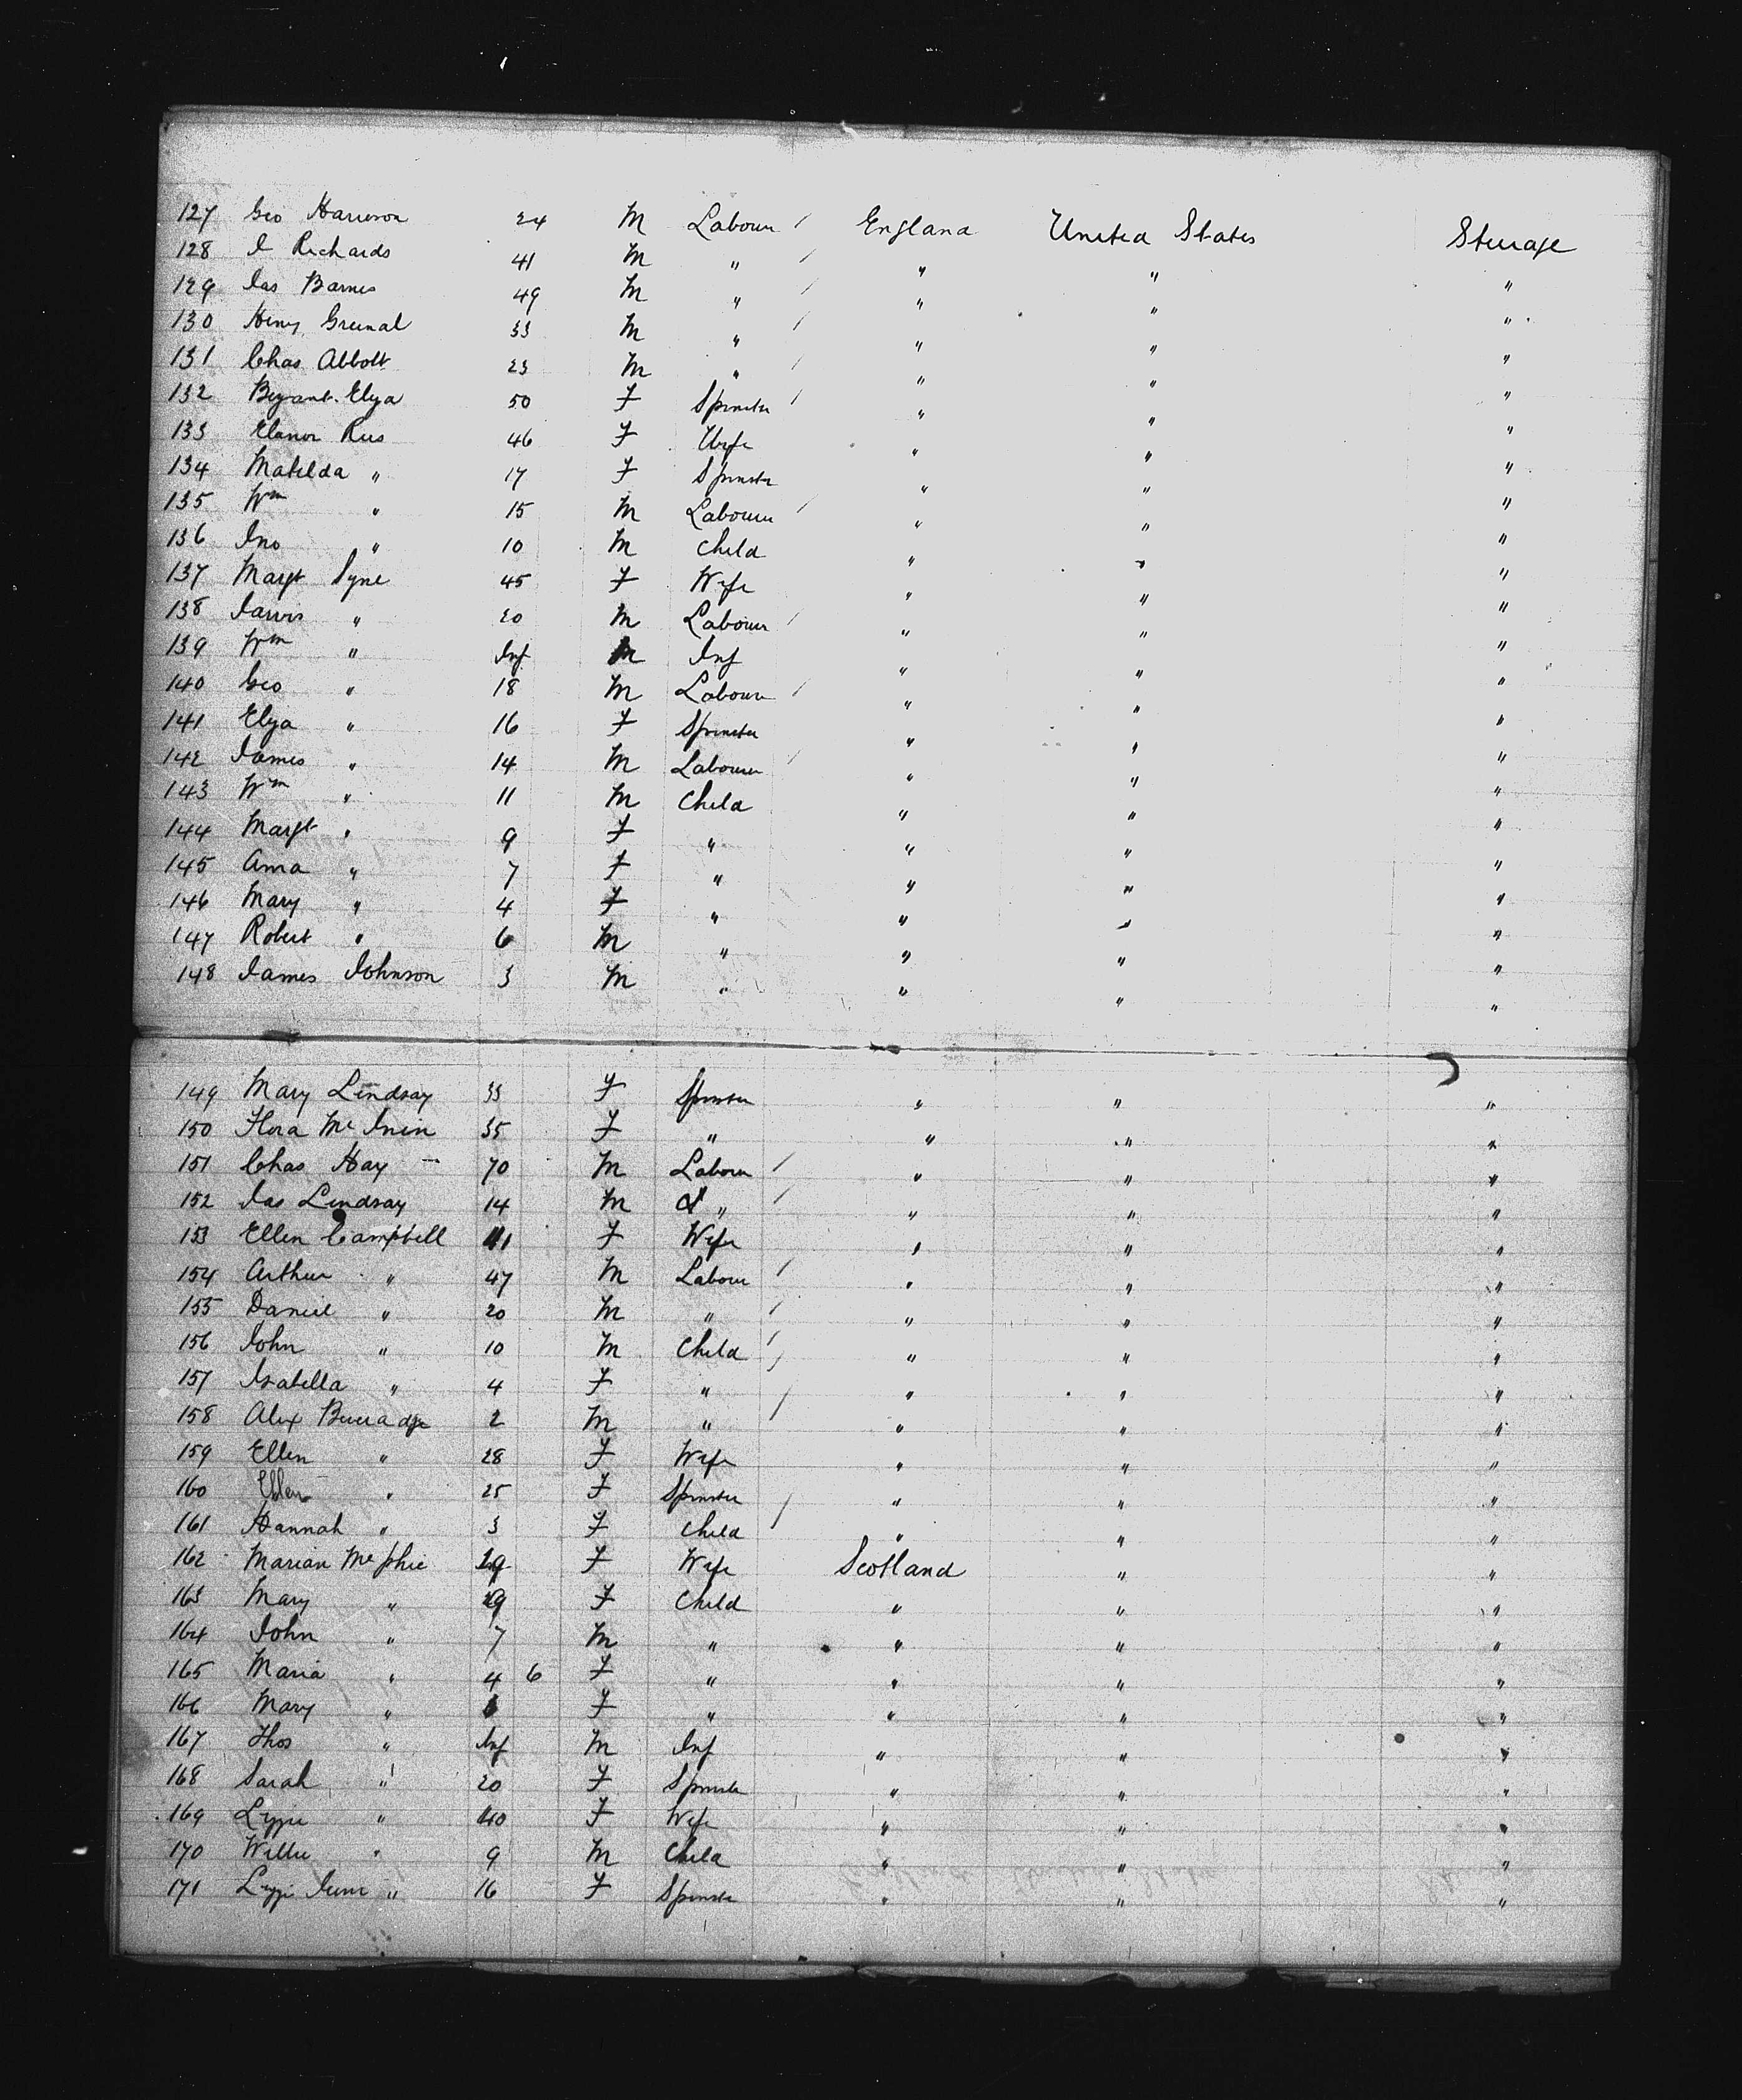 127 Geo Harrison 24 M Labourer / England United States Steerage
128 J Richards 41 M " / " " "
129 Jas Barnes 49 M " / " " "
130 Heny Greenal 33 M " / " " "
131 Chas Abbott 23 M " / " " "
132 Bryant Elza 50 F Spinster / " " "
133 Elanor Rees 46 F Wife " " "
134 Matilda " 17 F Spinster " " "
135 Wm " 15 M Labourer / " " "
136 Jno " 10 M Child " " "
137 Margt Syne 45 F Wife " " "
138 Jarvis " 20 M Labourer / " " "
139 Wm " Inf M Inf " " "
140 Geo " 18 M Labourer / " " "
141 Elza " 16 F Spinster " " "
142 James " 14 M Labourer / " " "
143 Wm " 11 M Child " " "
144 Margt " 9 F " " " "
145 Anna " 7 F " " " "
146 Mary " 4 F " " " "
147 Robert " 6 M " " " "
148 James Johnson 3 M " " " "
149 Mary Lindsay 33 F Spinster " " "
150 Flora Mc 35 F " " " "
151 Chas Hay 70 M Labourer / " " "
152 Jas Lindsay 14 M " / " " "
153 Ellen Campbell 41 F Wife " " "
154 Arthur " 47 M Labourer / " " "
155 Daniel " 20 M " / " " "
156 John " 10 M Child / " " "
157 Isabella " 4 F " / " " "
158 Alex Beveradge 2 M " / " " "
159 Ellen " 28 F Wife " " "
160 " 25 F Spinster / " " "
161 Hannah " 3 F Child " " "
162 Marian McPhie 29 F Wife Scotland " "
163 Mary " 9 F Child " " "
164 John " 7 M " " " "
165 Maria " 4 6 F " " " "
166 Mary " F " " " "
167 Thos " Inf M Inf " " "
168 Sarah " 20 F Spinster " " "
169 Lizzie " 40 F Wife " " "
170 Willie " 9 M Child " " "
171 Lizzie Junr " 16 F Spinster " " "